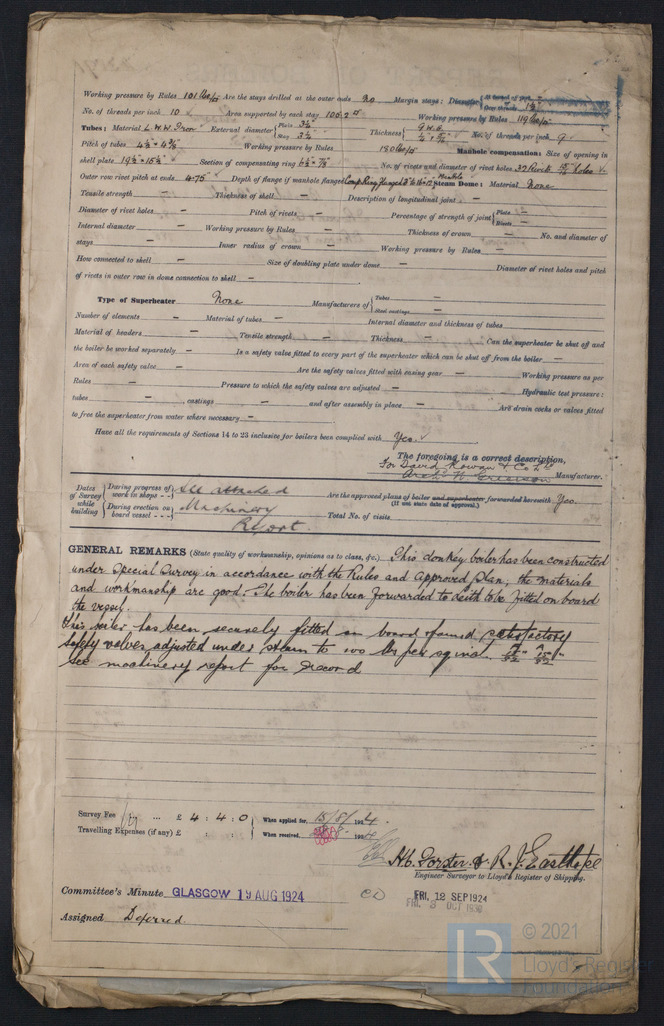 Working pressure by Rules 101 lbs/□" Are the stays drilled at the outer ends No Margin stays: Diameter { At turned off part, — Over threads 1½"
No. of threads per inch 10 Area supported by each stay 106.2 □" Working pressure by Rules 119 lbs/□"
Tubes: Material L.W.W. Iron External diameter { Plain 3½" Stay 3½" Thickness { 9 W.G. No. of threads per inch 9
Pitch of tubes Working pressure by Rules 180 lbs/□" Manhole compensation: Size of opening in
shell plate 19½" × 15½" Section of compensating ring No. of rivets and diameter of rivet holes 32 Rivets holes
Outer row rivet pitch at ends 4.75" Depth of flange if manhole flanged Comp. Ring flanged Steam Dome: Material None
Tensile strength — Thickness of shell — Description of longitudinal joint —
Diameter of rivet holes — Pitch of rivets — Percentage of strength of joint { Plate — Rivets —
Internal diameter — Working pressure by Rules — Thickness of crown — No. and diameter of
stays — Inner radius of crown — Working pressure by Rules —
How connected to shell — Size of doubling plate under dome — Diameter of rivet holes and pitch
of rivets in outer row in dome connection to shell —
Type of Superheater None Manufacturers of { Tubes — Steel castings —
Number of elements — Material of tubes — Internal diameter and thickness of tubes
Material of headers — Tensile strength — Thickness — Can the superheater be shut off and
the boiler be worked separately — Is a safety valve fitted to every part of the superheater which can be shut off from the boiler —
Area of each safety valve — Are the safety valves fitted with easing gear — Working pressure as per
Rules — Pressure to which the safety valves are adjusted — Hydraulic test pressure:
tubes — castings — and after assembly in place — Are drain cocks or valves fitted
to free the superheater from water where necessary —
Have all the requirements of Sections 14 to 23 inclusive for boilers been complied with Yes.
The foregoing is a correct description,
For David Rowan & Co Ld
Arch. W. Grierson Manufacturer.
Dates of Survey while building { During progress of work in shops - - See attached
During erection on board vessel - - - Machinery Report.
Are the approved plans of boiler and superheater forwarded herewith Yes.
(If not state date of approval.)
Total No. of visits
GENERAL REMARKS (State quality of workmanship, opinions as to class, &c.) This donkey boiler has been constructed
under Special Survey in accordance with the Rules and approved Plan, the materials
and workmanship are good. The boiler has been forwarded to Leith to be fitted on board
the vessel.
This boiler has been securely fitted on board & found satisfactory
safety valves adjusted under steam to 100 lbs per sq. inch.
See machinery report for record
Survey Fee ... £ 4 : 4 : 0 When applied for, 15/8/1924.
Travelling Expenses (if any) £ : : When received, 1924
H.C. Forster & R. J. Easthope
Engineer Surveyor to Lloyd's Register of Shipping.
Committee's Minute GLASGOW 19 AUG 1924 FRI. 12 SEP 1924
FRI. 3 OCT 1930
Assigned Deferred.
LR © 2021
Lloyd's Register
Foundation